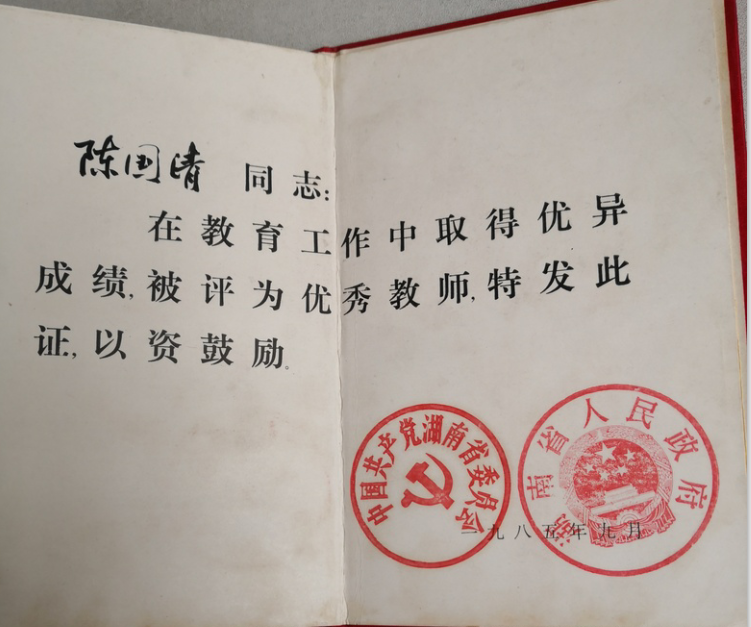 陈国清 同志:
在教育工作中取得优异
成绩,被评为优秀教师,特发此
证,以资鼓励。
中国共产党湖南省委员会
湖南省人民政府
一九八五年九月